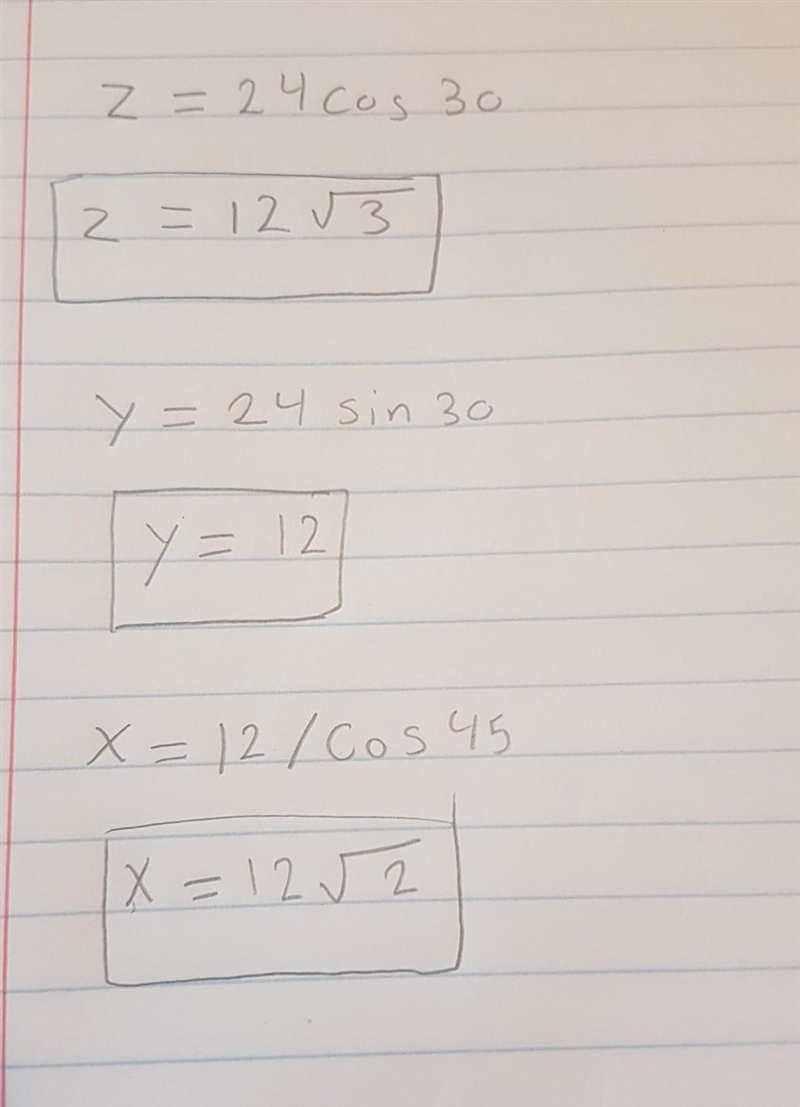 z = 24 cos 30
z = 12 √3
y = 24 sin 30
y = 12
x = 12 / cos 45
x = 12 √2